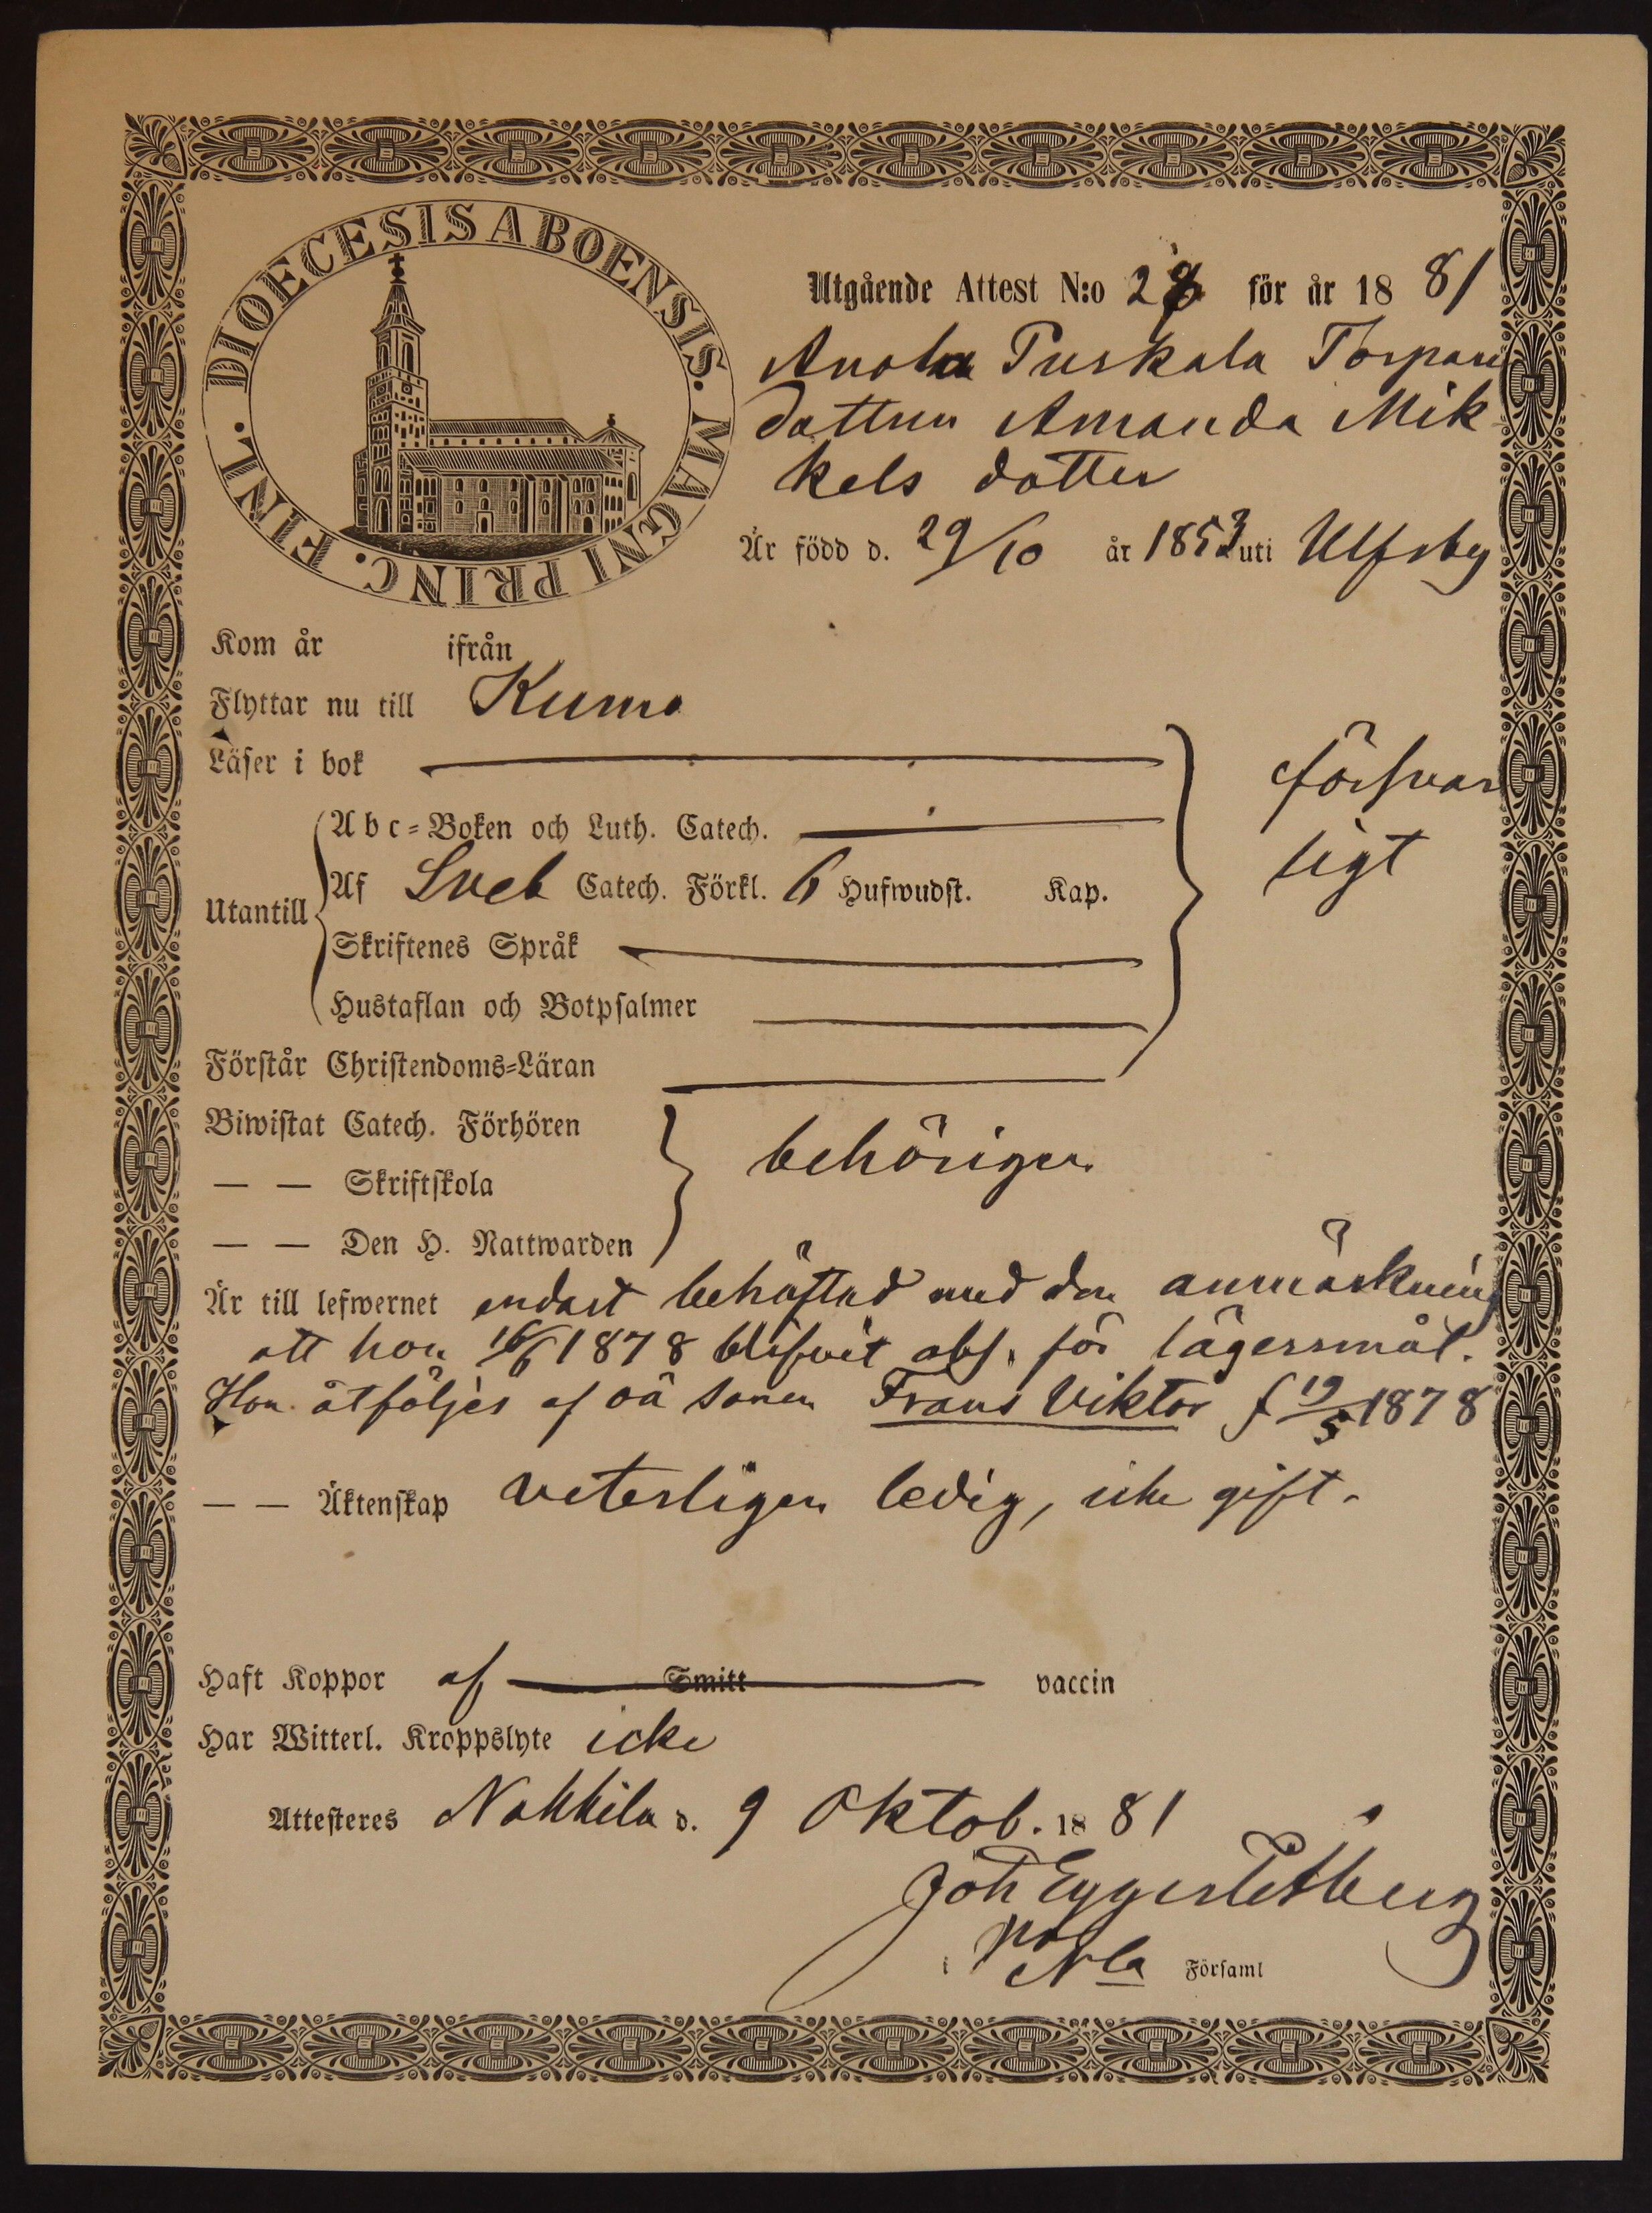 DIOECESIS ABOENSIS. MAGNI PRINC. FINL.
Utgående Attest N:o 28 för år 18 81
Anola Puskala Torpare
dottren Amanda Mik
kels dotter
Är född d. 29/10 år 1853 uti Ulfsby
Kom år ifrån
Flyttar nu till Kumo
Läser i bok
försvar
Abc=Boken och Luth. Catech.
ligt
Utantill
Af Sveb Catech. Förkl. 6 Hufwudst. Kap.
Skriftenes Språk
Hustaflan och Botpsalmer
Förstår Christendoms=Läran
Biwistat Catech. Förhören
behörigen
— — Skriftskola
— — Den H. Nattwarden
Är till lefwernet endast behäftad med den anmärkning
att hon 16/6 1878 blifvit abs. för lägersmål.
Hon åtföljes af oä sonen Frans Viktor f 19/5 1878
— — Äktenskap veterligen ledig, icke gift.
Haft Koppor af Smitt vaccin
Har Witterl. Kroppslyte icke
Attesteres Nakkila d. 9 Oktob. 18 81
Joh Eggert
i Nla Församl